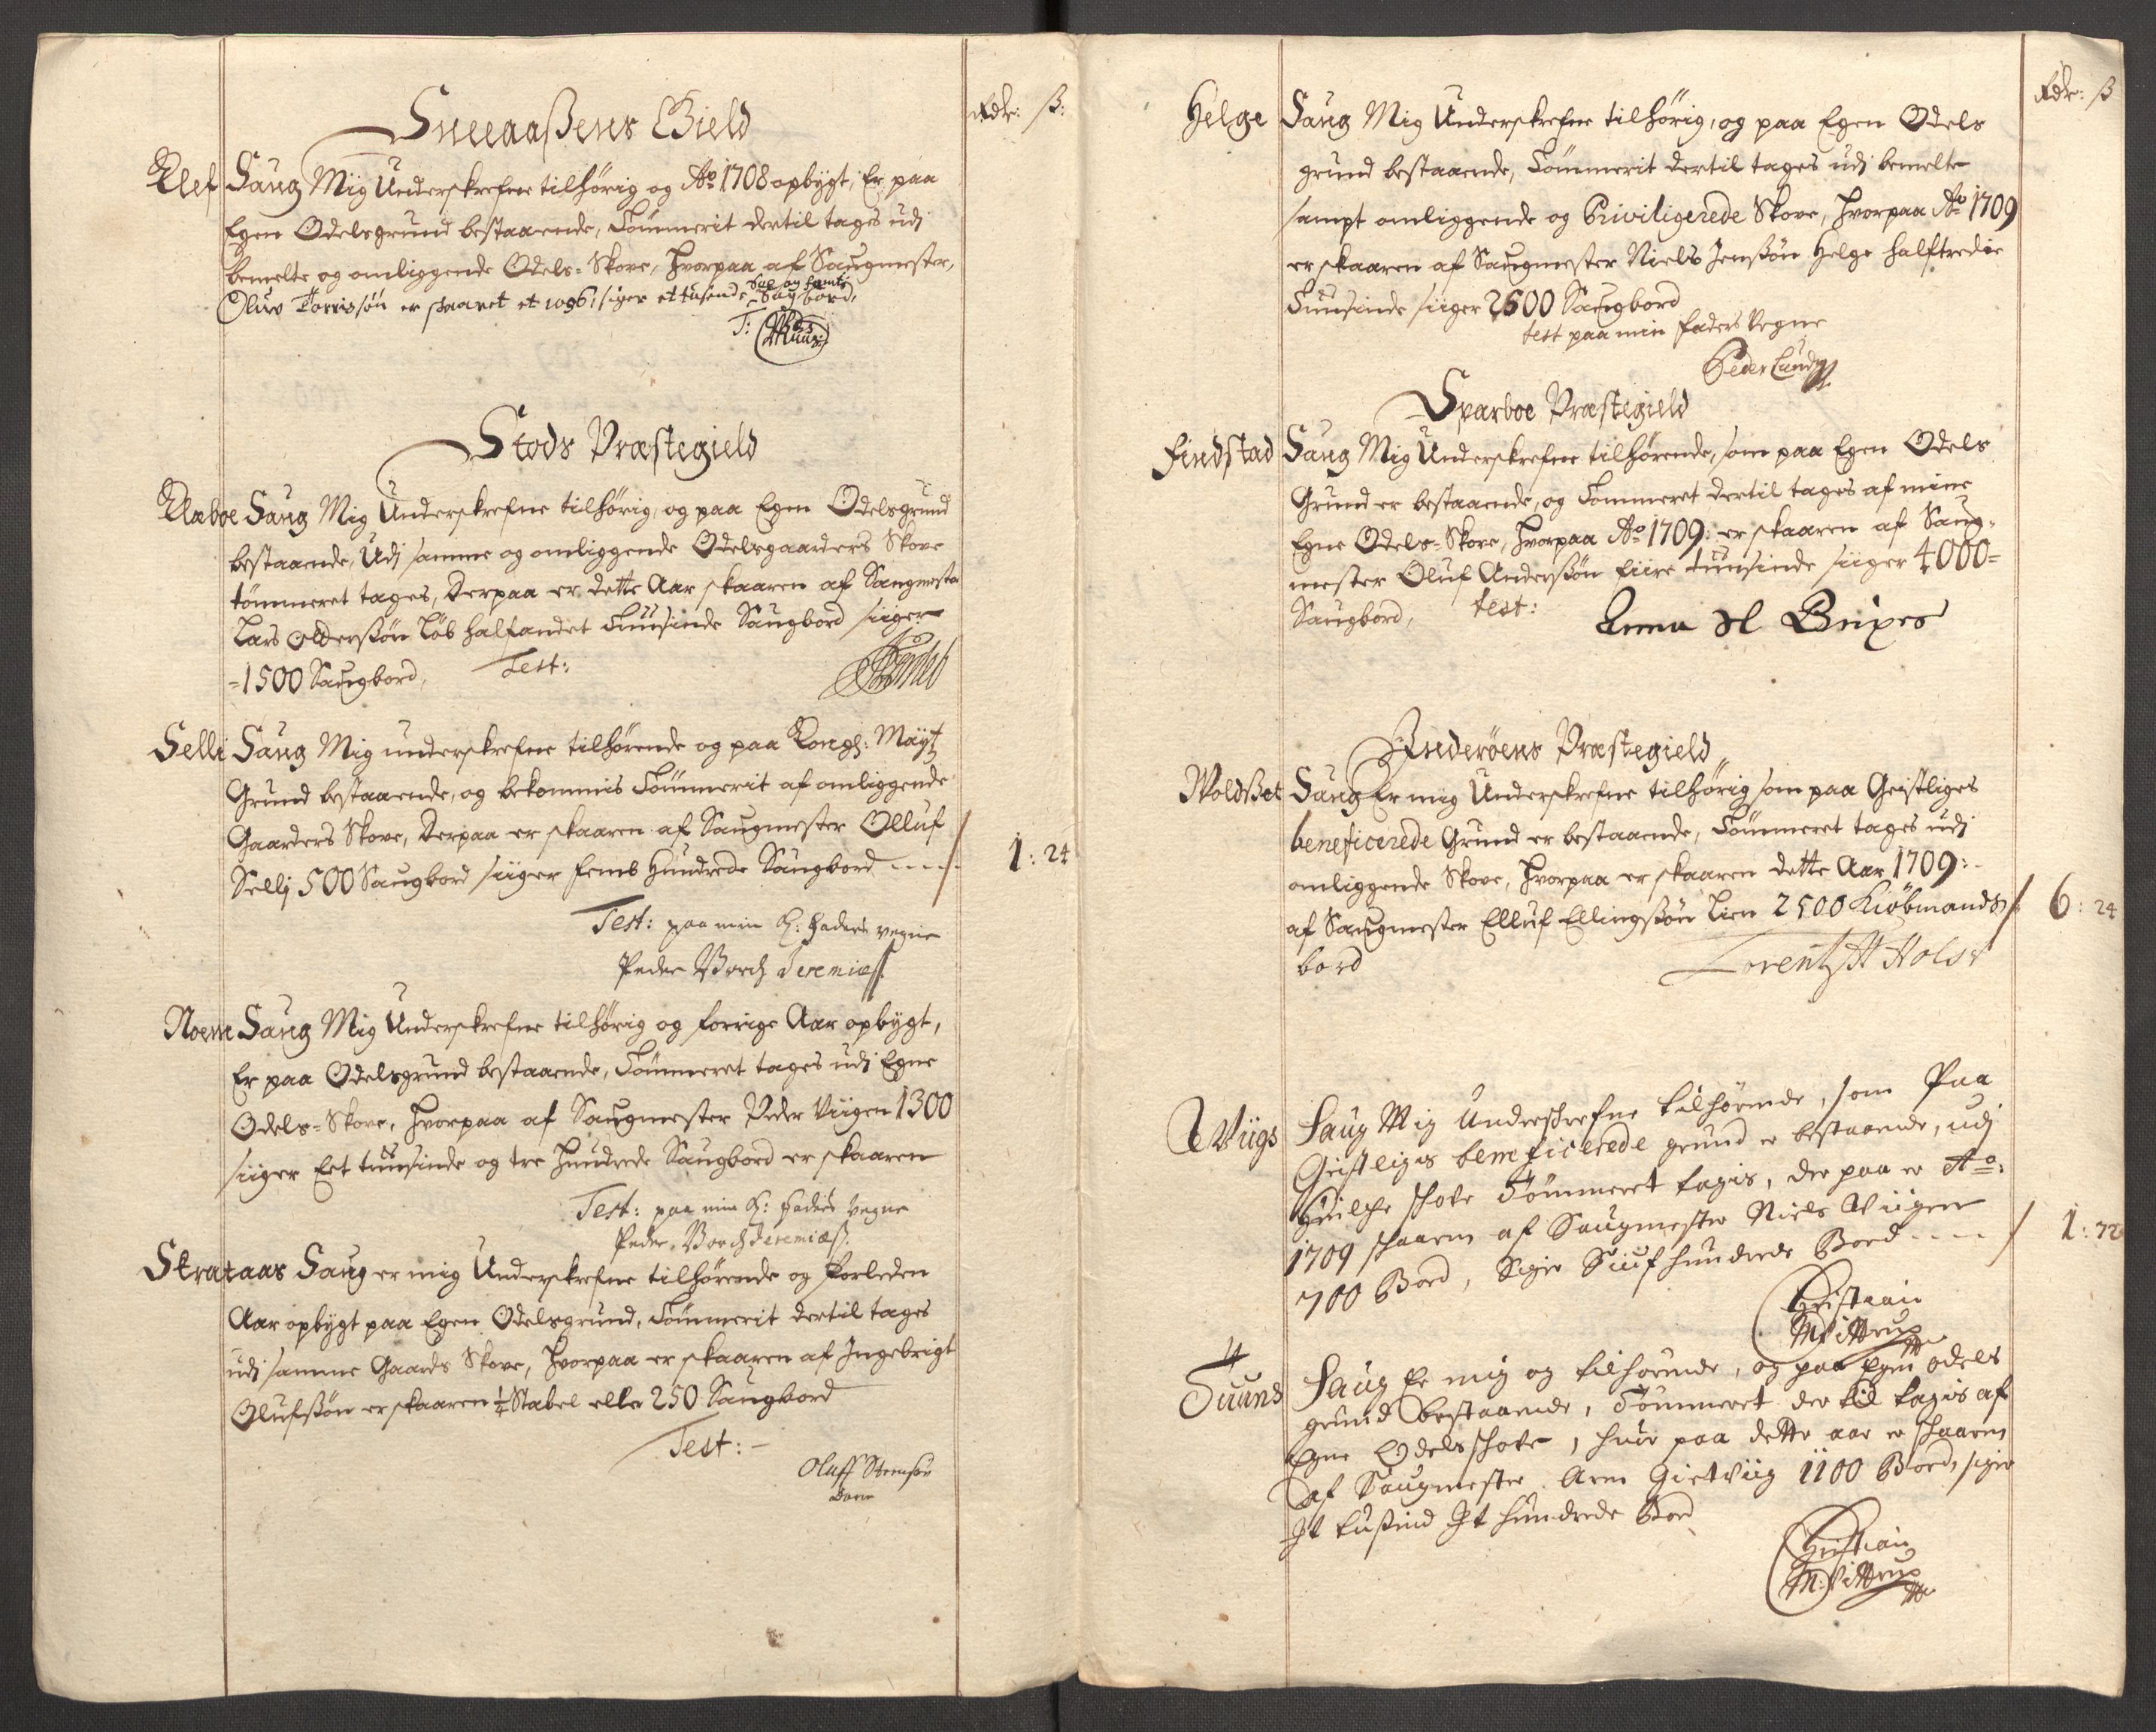 Rdr: ß:
Sneeaaßens Gield
Klef Saug Mig Underskrefne tilhörig og Ao 1708 opbygt, Er paa
Egen Odelsgrund bestaaende, Tömmerit dertil tages udj
bemelte og omliggende Odels-Skove, hvorpaa af Saugmester,
Oluv Torrissön er skaaret et 1096, siger et tusende Sax og Femti Sagbord,
T:
Stods Præstegield
Klæboe Saug Mig Underskrefne tilhörig, og paa Egen Odelsgrund
bestaaende, Udj samme og omliggende Odelsgaarders Skove
tömmeret tages, Derpaa er dette Aar skaaren af Saugmester
Lars Olderssön Löb halfandet Tuusinde Saugbord siiger
=1500 Saugbord, Test:
Selli Saug Mig underskrefne tilhörende og paa Kongl: Mayt
Grund bestaaende, og bekommis Tömmerit af omliggende
Gaarders Skove, Derpaa er skaaren af Saugmester Olluf
Sellj 500 Saugbord siiger femb Hundrede Saugbord ---- / 1: 24
Test: paa min K: Faders vegne
Peder Borch Jeremiæss.
Noem Saug Mig Underskrefne tilhörig og forrige Aar opbygt,
Er paa Odelsgrund bestaaende, Tömmeret tages udj Egne
Odels-Skove, hvorpaa af Saugmester Peder Viigen 1300
siiger Eet tuusinde og tre Hundrede Saugbord er skaaren
Test: paa min K: Faders Vegne
Peder Borch Jeremiæss.
Strataas Saug er mig Underskrefne tilhörende og Forleden
Aar opbygt paa Egen Odelsgrund, Tömmerit dertil tages
udj samme Gaards Skove, hvorpaa er skaaren af Ingebrigt
Olufssön er skaaren ¼ Stabel eller 250 Saugbord
Test:-
Oluff Steensen
Rdr: ß
Helge Saug Mig Underskrefne tilhörig, og paa Egen Odels
grund bestaaende, Tömmerit dertil tages udj bemelte
sampt omliggende og Priviligerede Skove, hvorpaa Ao 1709
er skaaren af Saugmester Niels Jenssön Helge halftredie
Tuusinde siiger 2500 Saugbord
test paa min Faders Vegne
Peder Lund
Sparboe Præstegield
Findstad Saug Mig Underskrefne tilhörende, som paa Egen Odels
Grund er bestaaende, og Tommeret dertil tages af mine
Egne Odels-Skove, hvorpaa Ao 1709: er skaaren af Saug-
mester Oluf Anderssön fiire tuusinde siiger 4000=
Saugbord, test:
Anna Sl Brixes
Inderöens Præstegield
Woldßet Saug Er mig Underskrefne tilhörig som paa Geistliges
beneficerede Grund er bestaaende, Tömmeret tages udj
omliggende Skove, hvorpaa er skaaren dette Aar 1709:-
af Saugmester Elluf Ellingssön Lien 2500 Kiöbmands / 6: 24
bord
Lorentz Holst
Wiigs Saug Mig Underschrefne tilhörende, som Paa
Geistligis beneficerede grund er bestaaende, udj
Huilche schove Tömmeret tagis, der paa er Ao:
1709 schaaren af Saugmester Niels Wiigen
700 Bord, Siger Siuf hundrede Bord ---- / 1: 72
Christian
M Vittrup
Tuuns Saug Er mig og tilhörende, og paa Egen odels
grund bestaaende, Tömmeret der til tagis af
Egne Odels schove, huor paa dette aar er schaaren
af Saugmester Arn Gietviig 1100 Bord, siger
It tusind It hundrede Bord
Christian
M: Vittrup